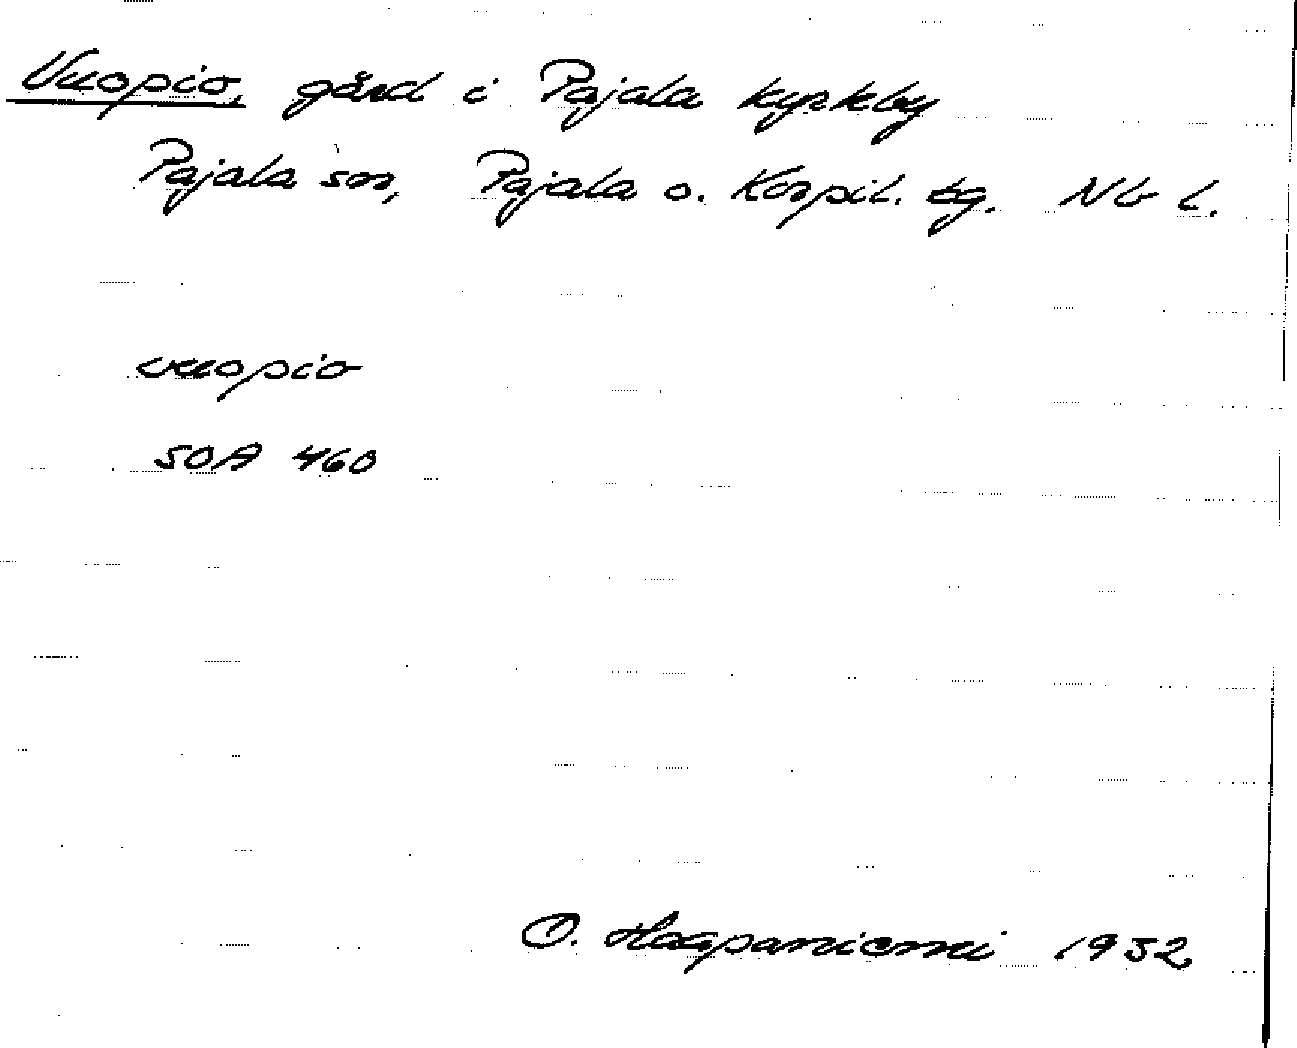 Vuopio, gård i Pajala kyrkby
Pajala sn, Pajala o. Korpil. tg. Nb l.
vuopio
SOA 460
O. Haapaniemi 1952